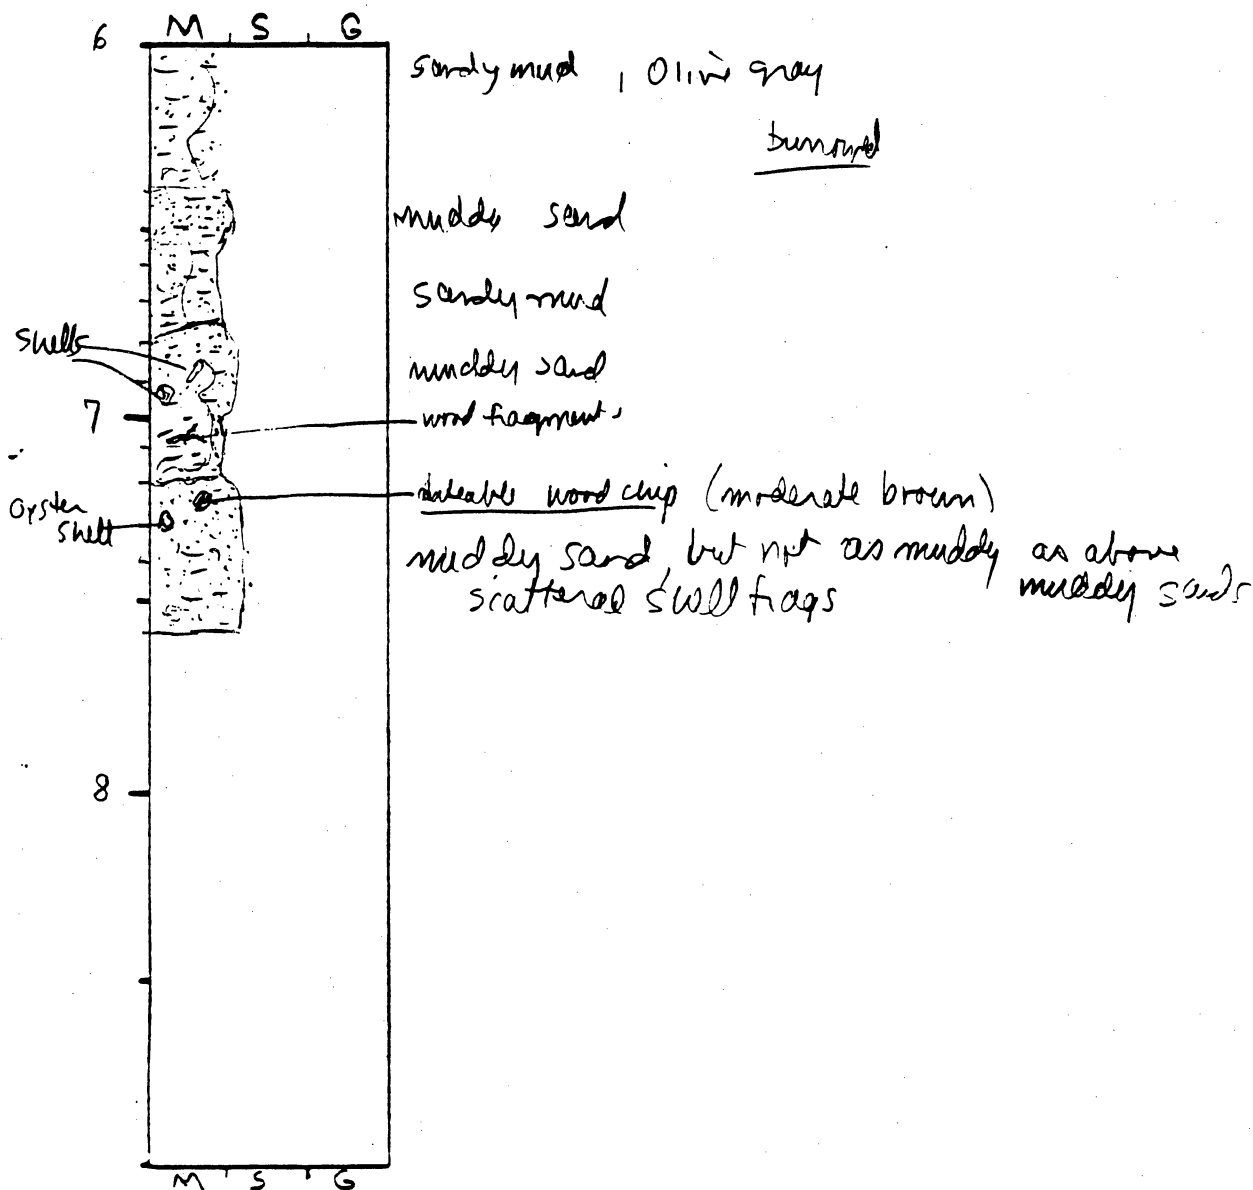 M S G
6
sandy mud, Olive gray
burrowed
muddy sand
sandy mud
shells
muddy sand
7
wood fragments
dateable wood chip (moderate brown)
oyster
shell
muddy sand, but not as muddy as above
muddy sands
scattered shell frags
8
M S G